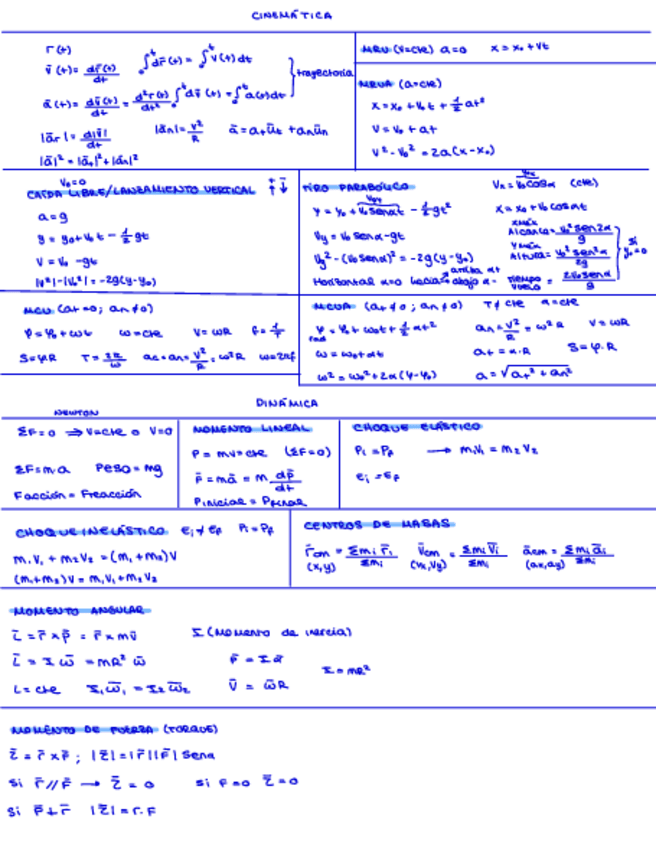 CINEMÁTICA
r(t)
v̄(t) = dr̄(t)/dt   ∫ᵗ dr̄(t) = ∫ᵗ v̄(t)dt
ā(t) = dv̄(t)/dt = d²r(t)/dt²   ∫ᵗ dv̄(t) = ∫ᵗ ā(t)dt   } trayectoria
|āt| = d|v̄|/dt   |ān| = v²/R   ā = atūt + anūn
|ā|² = |āt|² + |ān|²
MRU (v=cte) a=0   x = x₀ + vt
MRUA (a=cte)
x = x₀ + v₀t + 1/2 at²
v = v₀ + at
v² - v₀² = 2a(x - x₀)
v₀=0
CAÍDA LIBRE/LANZAMIENTO VERTICAL ↑ ↓
a = g
y = y₀ + v₀t - 1/2 gt
v = v₀ - gt
|v²| - |v₀²| = -2g(y-y₀)
TIRO PARABÓLICO   Vx = V₀cosα (cte)
y = y₀ + V₀senαt - 1/2 gt²   x = x₀ + V₀cosαt
Vy = V₀senα - gt   xmáx Alcance = V₀²sen2α/g
Vy² - (V₀senα)² = -2g(y-y₀)   ymáx Altura = V₀²sen²α/2g   } si y₀=0
Horizontal α=0   hacia arriba α+ abajo α-   tiempo vuelo = 2V₀senα/g
MCU (at=0; an≠0)
φ = φ₀ + ωt   ω=cte   v = ωR   f = 1/T
S = φR   T = 2π/ω   ac = an = v²/R = ω²R   ω = 2πf
MCUA (at≠0; an≠0) T≠cte α=cte
φ = φ₀ + ω₀t + 1/2 αt²   an = v²/R = ω²R   v = ωR
rad
ω = ω₀ + αt   at = α·R   S = φ·R
ω² = ω₀² + 2α(φ-φ₀)   a = √(at² + an²)
DINÁMICA
NEWTON
ΣF=0 ⇒ v=cte o v=0
ΣF=m·a   Peso = mg
Facción = Freacción
MOMENTO LINEAL
P = mv=cte (ΣF=0)
F̄ = mā = m dp̄/dt
Pinicial = Pfinal
CHOQUE ELÁSTICO
Pi = Pf → m₁V₁ = m₂V₂
ei = Ef
CHOQUE INELÁSTICO ei ≠ ef Pi = Pf
m₁V₁ + m₂V₂ = (m₁+m₂)V
(m₁+m₂)V = m₁V₁ + m₂V₂
CENTROS DE MASAS
r̄cm = Σmi r̄i/Σmi   v̄cm = Σmi v̄i/Σmi   ācm = Σmi āi/Σmi
(x,y)   (vx,vy)   (ax,ay)
MOMENTO ANGULAR
L̄ = r̄ × p̄ = r̄ × mv̄   I (momento de inercia)
L̄ = I ω̄ = mR² ω̄   F̄ = I ᾱ   I = mR²
L = cte   I₁ω̄₁ = I₂ω̄₂   V̄ = ω̄R
MOMENTO DE FUERZA (TORQUE)
τ̄ = r̄ × F̄ ; |τ̄| = |r̄||F̄| senα
si r̄//F̄ → τ̄ = 0   si F=0 τ̄=0
si F̄⊥r̄ |τ̄| = r·F